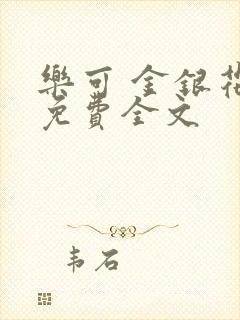 樂可 金銀花
免費全文
韦石